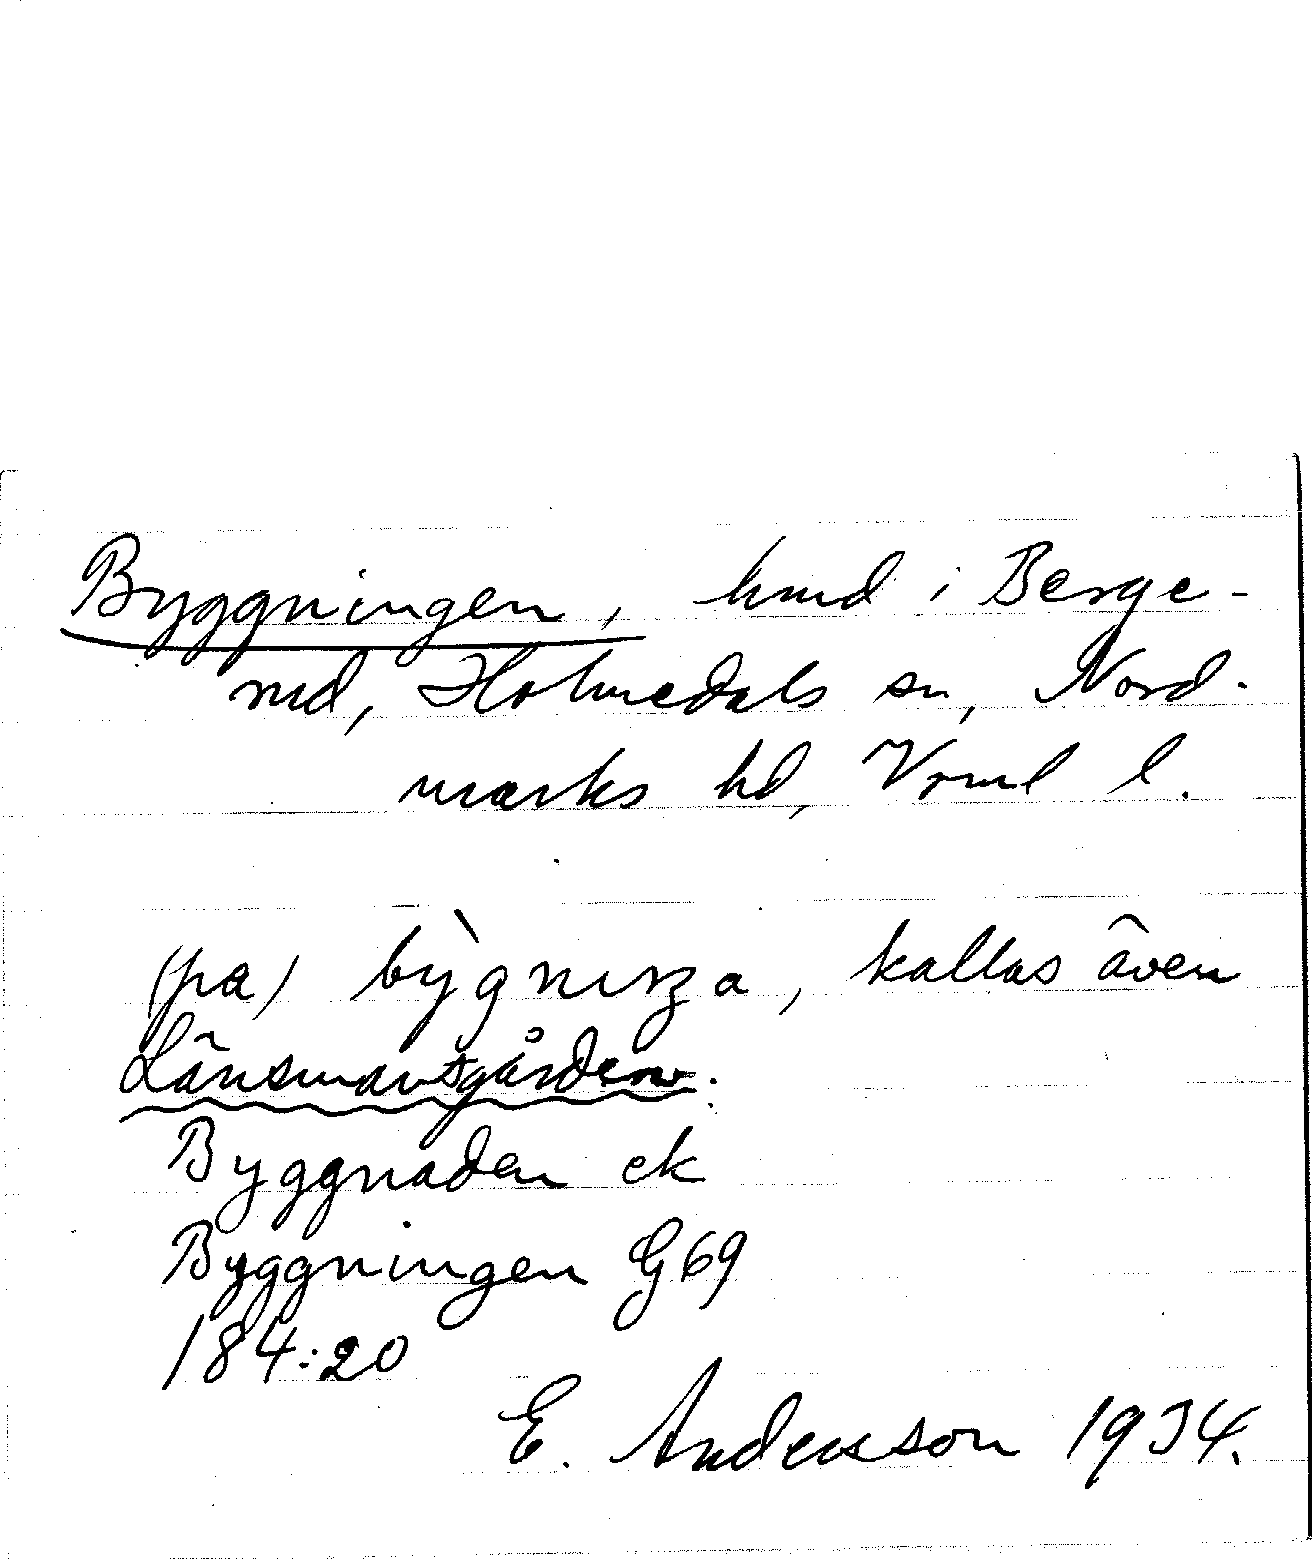 Byggningen, hmd i Berge-
rud, Holmedals sn, Nord-
marks hd, Vrml l.
(på) bỳgnıŋa, kallas även
Länsmansgården.
Byggnaden ek
Byggningen G69
184:20
E. Andersson 1934.